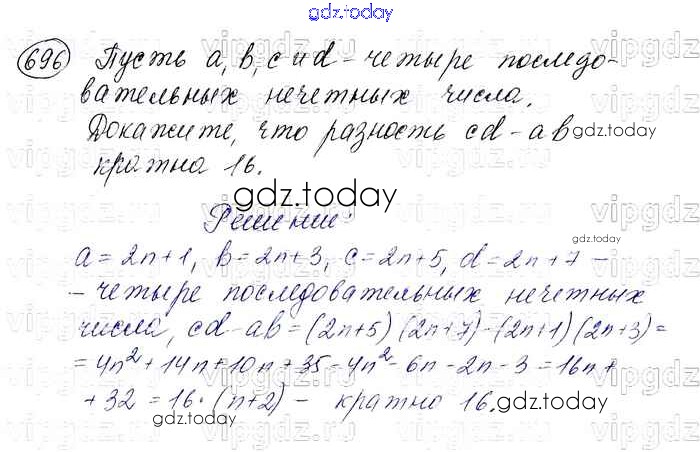 gdz.today
696 Пусть a, b, c и d – четыре последо-
вательных нечетных числа.
Докажите, что разность cd – ab
gdz.today
кратна 16.
gdz.today
Решение:
gdz.today
a = 2n+1, b = 2n+3, c = 2n+5, d = 2n+7 –
– четыре последовательных нечетных
числа, cd – ab = (2n+5)(2n+7) – (2n+1)(2n+3) =
= 4n² + 14n + 10n + 35 – 4n² – 6n – 2n – 3 = 16n +
+ 32 = 16 · (n+2) – кратно 16.
gdz.today